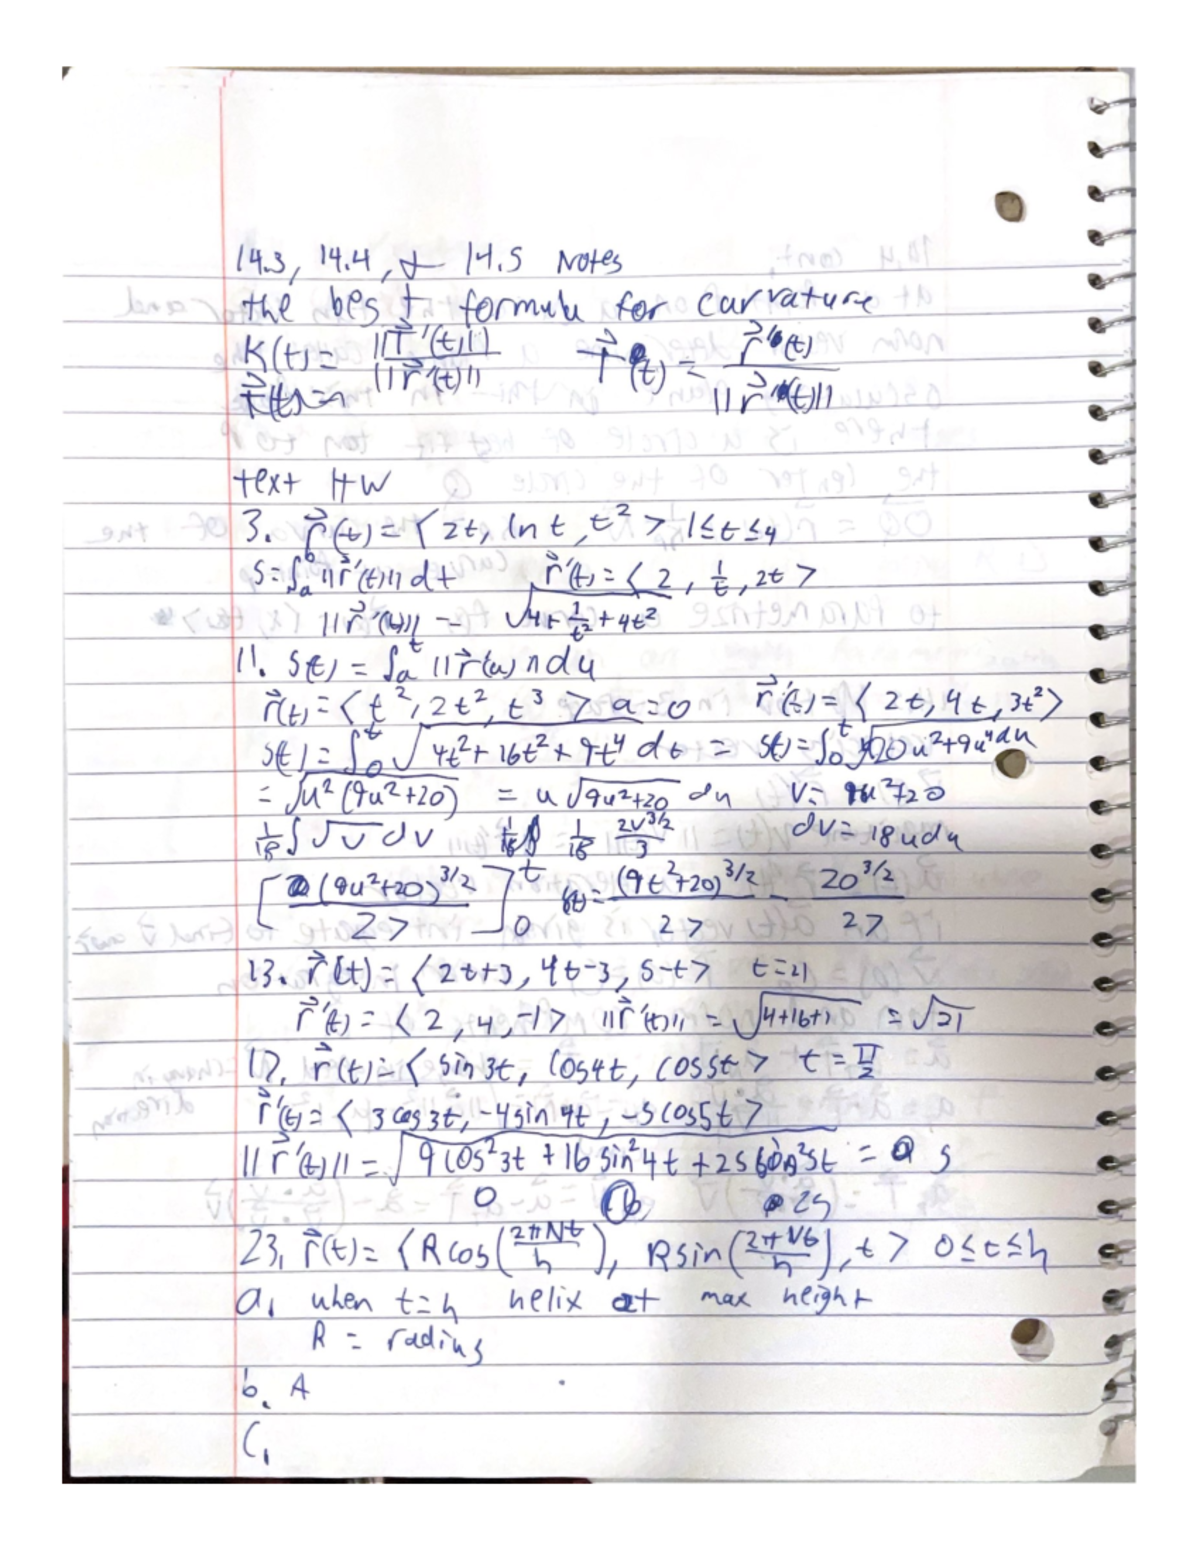 14.3, 14.4, & 14.5 Notes
the best formula for curvature
K(t) = ||T⃗'(t)|| / ||r⃗'(t)|| T⃗(t) = r⃗'(t) / ||r⃗'(t)||
text HW
3. r⃗(t) = ⟨2t, ln t, t²⟩ 1≤t≤4
s = ∫ₐᵇ ||r⃗'(t)|| dt r⃗'(t) = ⟨2, 1/t, 2t⟩
||r⃗'(t)|| = √(4 + 1/t² + 4t²)
11. s(t) = ∫ₐᵗ ||r⃗'(u)|| du
r⃗(t) = ⟨t², 2t², t³⟩ a=0 r⃗'(t) = ⟨2t, 4t, 3t²⟩
s(t) = ∫₀ᵗ √(4t² + 16t² + 9t⁴) dt = s(t) = ∫₀ᵗ √(20u² + 9u⁴) du
= √(u²(9u²+20)) = u√(9u²+20) du v = 9u²+20
1/18 ∫ √v dv 1/18 2v^(3/2)/3 dv = 18u du
[(9u²+20)^(3/2) / 27]₀ᵗ s(t) = (9t²+20)^(3/2) / 27 - 20^(3/2) / 27
13. r⃗(t) = ⟨2t+3, 4t-3, 5-t⟩ t=4
r⃗'(t) = ⟨2, 4, -1⟩ ||r⃗'(t)|| = √(4+16+1) = √21
17. r⃗(t) = ⟨sin 3t, cos 4t, cos 5t⟩ t = π/2
r⃗'(t) = ⟨3 cos 3t, -4 sin 4t, -5 cos 5t⟩
||r⃗'(t)|| = √(9 cos² 3t + 16 sin² 4t + 25 sin² 5t) = 5
0 25
23. r⃗(t) = ⟨R cos(2πNt/h), R sin(2πNt/h), t⟩ 0≤t≤h
a. when t=h helix at max height
R = radius
b. A
C.